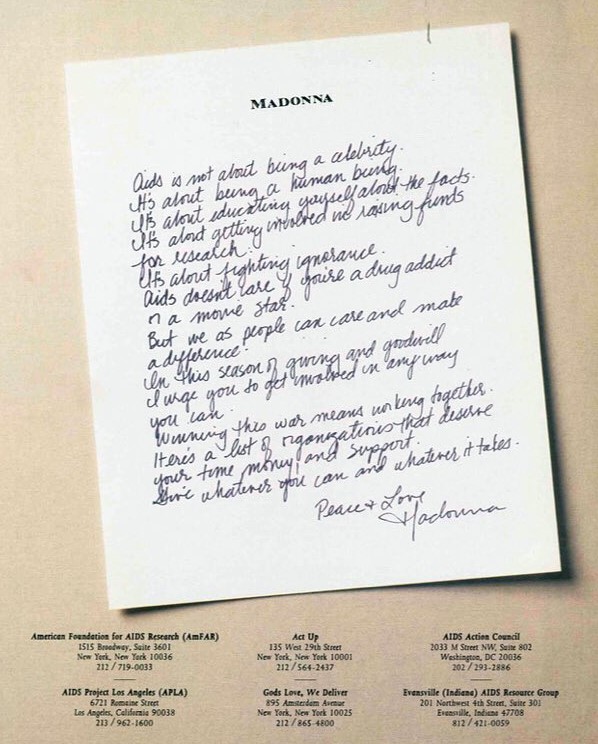 MADONNA
Aids is not about being a celebrity.
It's about being a human being.
It's about educating yourself about the facts.
It's about getting involved in raising funds
for research.
It's about fighting ignorance.
Aids doesn't care if you're a drug addict
or a movie star.
But we as people can care and make
a difference.
In this season of giving and goodwill
I urge you to get involved in any way
you can.
Winning this war means working together.
Here's a list of organizations that deserve
your time money and support.
Give whatever you can and whatever it takes.
Peace + Love
Madonna
American Foundation for AIDS Research (AmFAR)
1515 Broadway, Suite 3601
New York, New York 10036
212 / 719-0033
Act Up
135 West 29th Street
New York, New York 10001
212 / 564-2437
AIDS Action Council
2033 M Street NW, Suite 802
Washington, DC 20036
202 / 293-2886
AIDS Project Los Angeles (APLA)
6721 Romaine Street
Los Angeles, California 90038
213 / 962-1600
Gods Love, We Deliver
895 Amsterdam Avenue
New York, New York 10025
212 / 865-4800
Evansville (Indiana) AIDS Resource Group
201 Northwest 4th Street, Suite 301
Evansville, Indiana 47708
812 / 421-0059